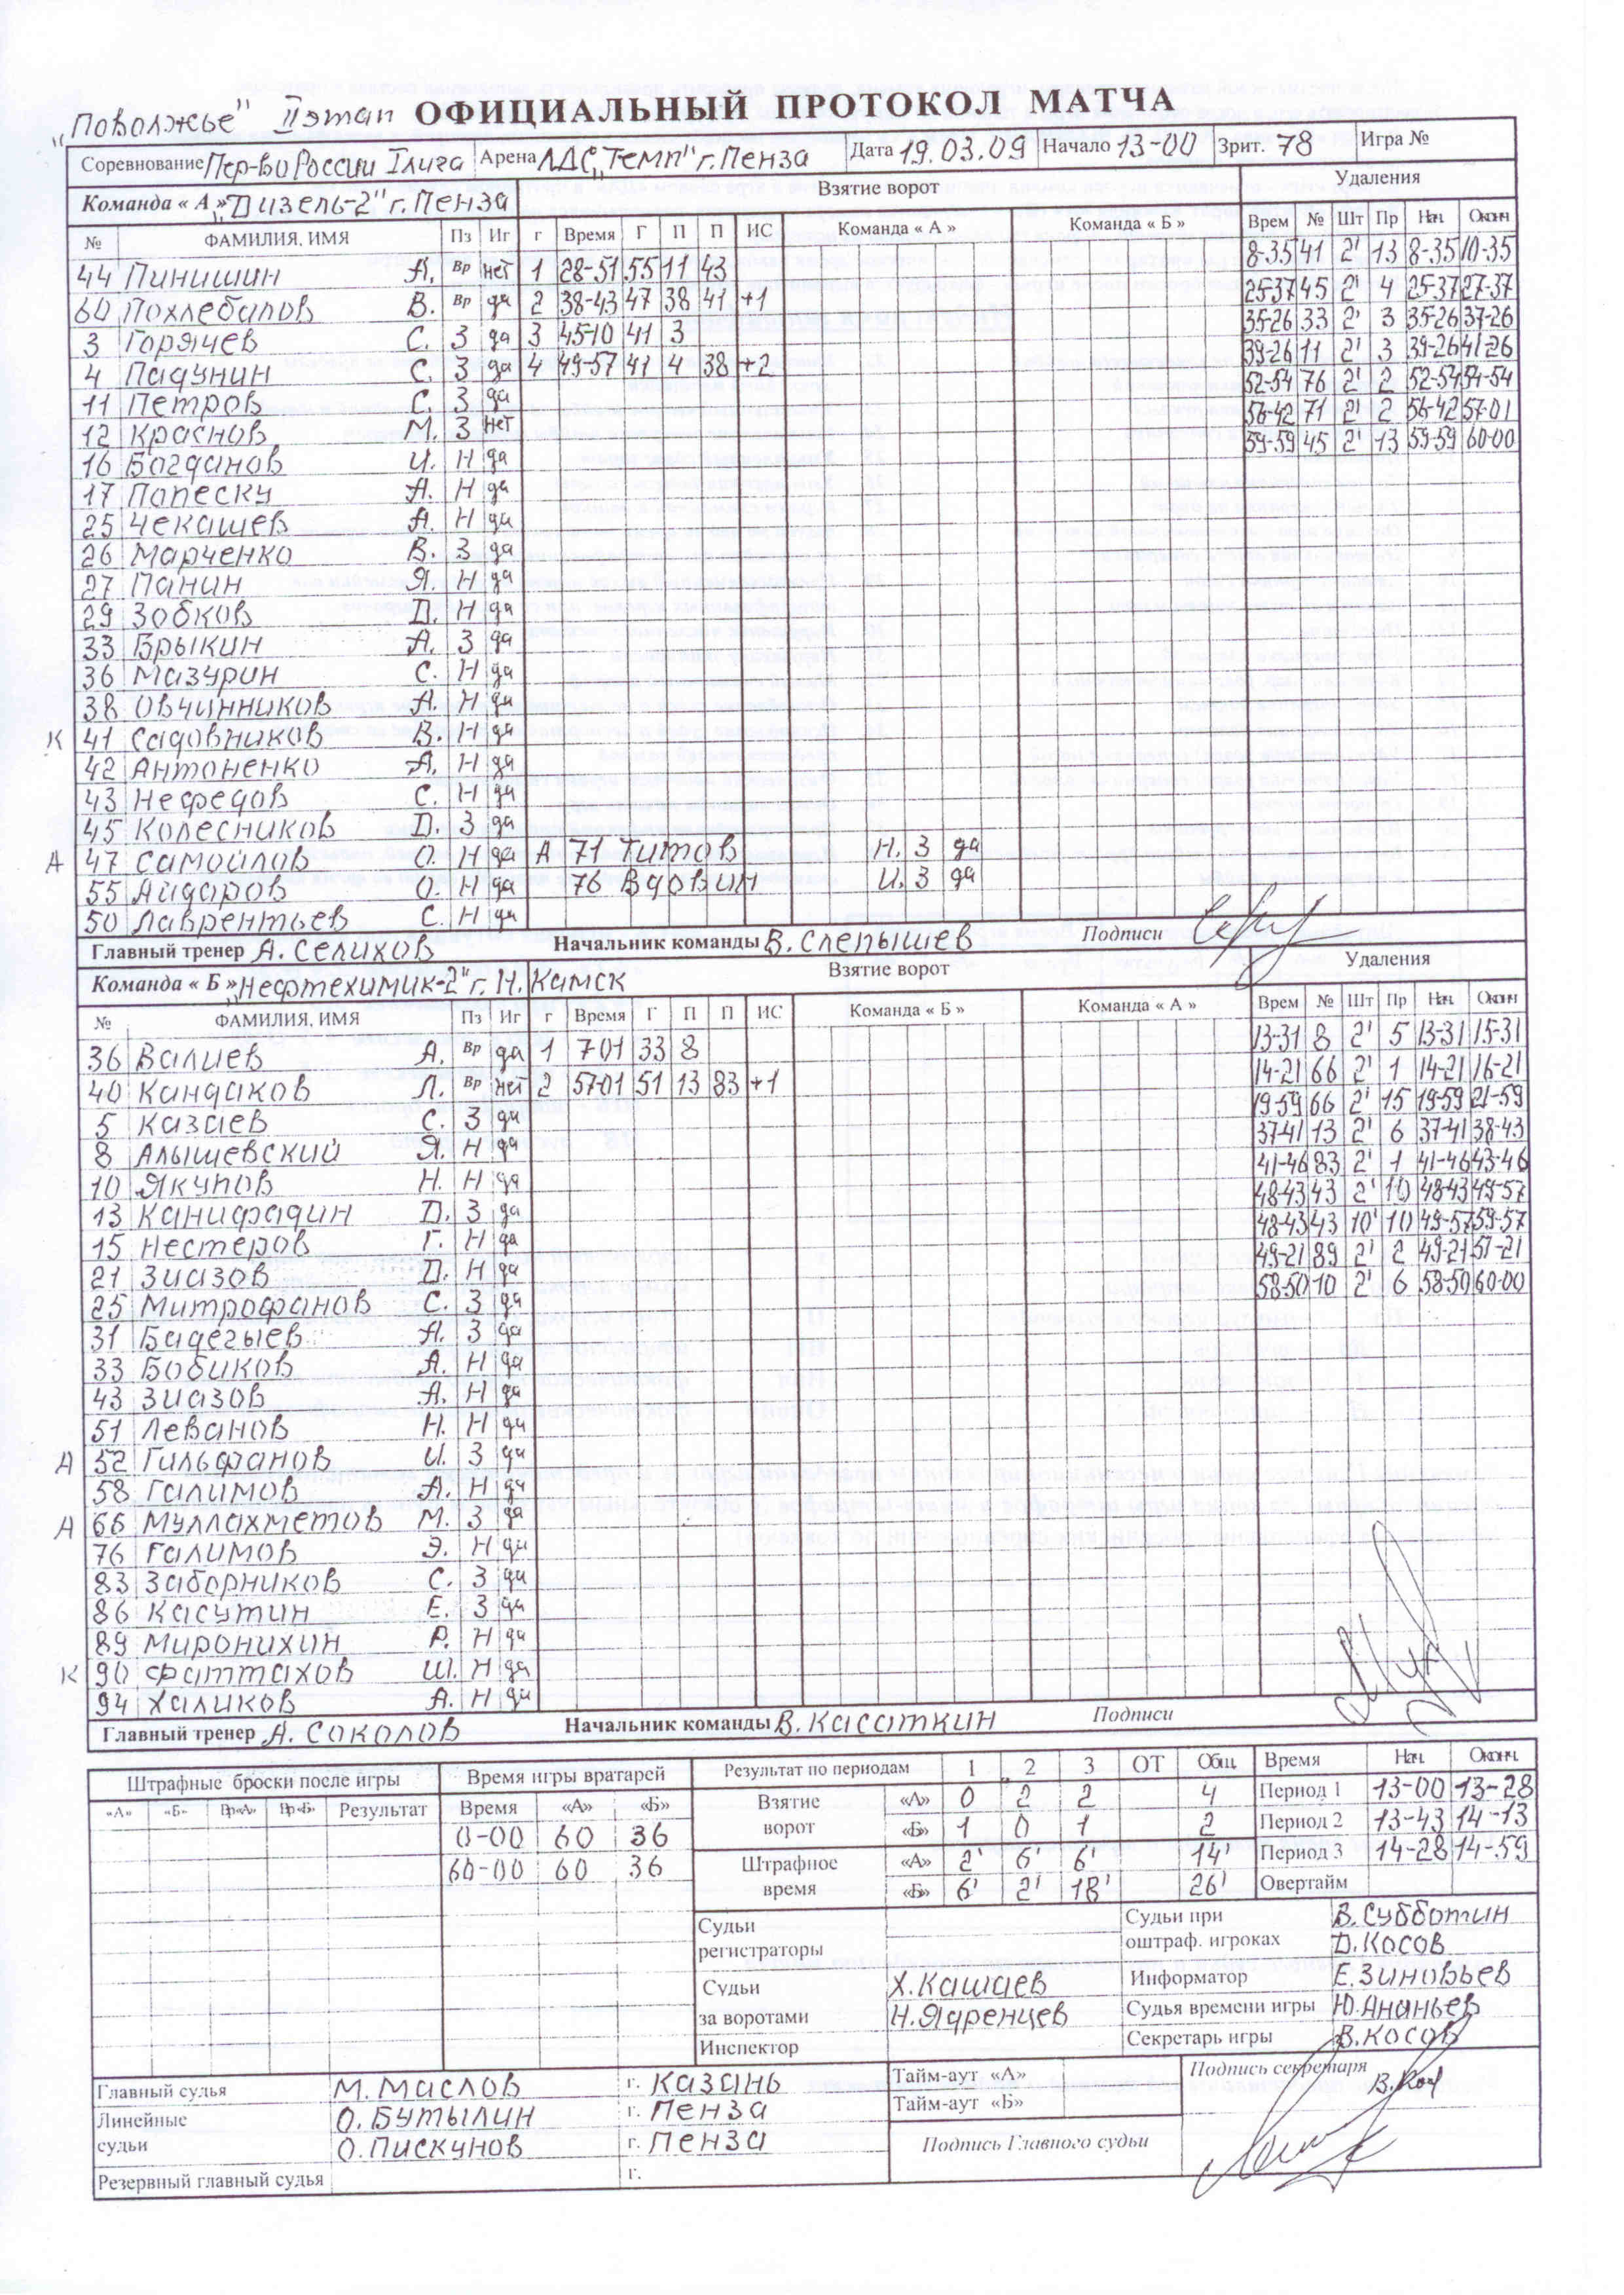 „Поволжье" II этап ОФИЦИАЛЬНЫЙ ПРОТОКОЛ МАТЧА
Соревнование Пер-во России I лига Арена ЛДС „Темп" г. Пенза Дата 19.03.09 Начало 13-00 Зрит. 78 Игра №
Команда « А » „Дизель-2" г. Пенза Взятие ворот Удаления
№ ФАМИЛИЯ, ИМЯ Пз Иг г Время Г П П ИС Команда « А » Команда « Б » Врем № Шт Пр Нач. Оконч
44 Пинишин А. Вр нет 1 28-51 55 11 43 8-35 41 2' 13 8-35 10-35
60 Похлебалов В. Вр да 2 38-43 47 38 41 +1 25-37 45 2' 4 25-37 27-37
3 Горячев С. З да 3 45-10 41 3 35-26 33 2' 3 35-26 37-26
4 Падунин С. З да 4 49-57 41 4 38 +2 39-26 11 2' 3 39-26 41-26
11 Петров С. З да 52-54 76 2' 2 52-54 54-54
12 Краснов М. З нет 56-42 71 2' 2 56-42 57-01
16 Богданов И. Н да 59-59 45 2' 13 59-59 60-00
17 Папеску А. Н да
25 Чекашев А. Н да
26 Марченко В. З да
27 Панин Я. Н да
29 Зобков Д. Н да
33 Брыкин А. З да
36 Мазурин С. Н да
38 Овчинников А. Н да
К 41 Садовников В. Н да
42 Антоненко А. Н да
43 Нефедов С. Н да
45 Колесников Д. З да
А 47 Самойлов О. Н да А 71 Титов Н. З да
55 Айдаров О. Н да 76 Вдовин И. З да
50 Лаврентьев С. Н да
Главный тренер А. Селихов Начальник команды В. Слепышев Подписи
Команда « Б » „Нефтехимик-2" г. Н. Камск Взятие ворот Удаления
№ ФАМИЛИЯ, ИМЯ Пз Иг г Время Г П П ИС Команда « Б » Команда « А » Врем № Шт Пр Нач. Оконч
36 Валиев А. Вр да 1 7-01 33 8 13-31 8 2' 5 13-31 15-31
40 Кандаков Л. Вр нет 2 57-01 51 13 83 +1 14-21 66 2' 1 14-21 16-21
5 Казаев С. З да 19-59 66 2' 15 19-59 21-59
8 Алышевский Я. Н да 37-41 13 2' 6 37-41 38-43
10 Якупов Н. Н да 41-46 83 2' 1 41-46 43-46
13 Канифадин Д. З да 48-43 43 2' 10 48-43 49-57
15 Нестеров Г. Н да 48-43 43 10' 10 49-57 59-57
21 Зиазов Д. Н да 49-21 89 2' 2 49-21 51-21
25 Митрофанов С. З да 58-50 10 2' 6 58-50 60-00
31 Бадегыев А. З да
33 Бобиков А. Н да
43 Зиазов А. Н да
51 Леванов Н. Н да
А 52 Гильфанов И. З да
58 Галимов А. Н да
А 66 Муллахметов М. З да
76 Галимов Э. Н да
83 Заборников С. З да
86 Касутин Е. З да
89 Миронихин Р. Н да
К 90 Фаттахов Ш. Н да
94 Халиков А. Н да
Главный тренер А. Соколов Начальник команды В. Касаткин Подписи
Штрафные броски после игры Время игры вратарей Результат по периодам 1 2 3 ОТ Общ. Время Нач. Оконч.
«А» «Б» Вр«А» Вр«Б» Результат Время «А» «Б» Взятие ворот «А» 0 2 2 4 Период 1 13-00 13-28
0-00 60 36 «Б» 1 0 1 2 Период 2 13-43 14-13
60-00 60 36 Штрафное время «А» 2' 6' 6' 14' Период 3 14-28 14-59
«Б» 6' 2' 18' 26' Овертайм
Судьи регистраторы Судьи при оштраф. игроках В. Субботин
Д. Косов
Судьи за воротами Х. Кашаев Информатор Е. Зиновьев
Н. Ядренцев Судья времени игры Ю. Ананьев
Инспектор Секретарь игры В. Косов
Главный судья М. Маслов г. Казань Тайм-аут «А» Подпись секретаря
Линейные судьи О. Бутылин г. Пенза Тайм-аут «Б»
О. Пискунов г. Пенза Подпись Главного судьи
Резервный главный судья г.